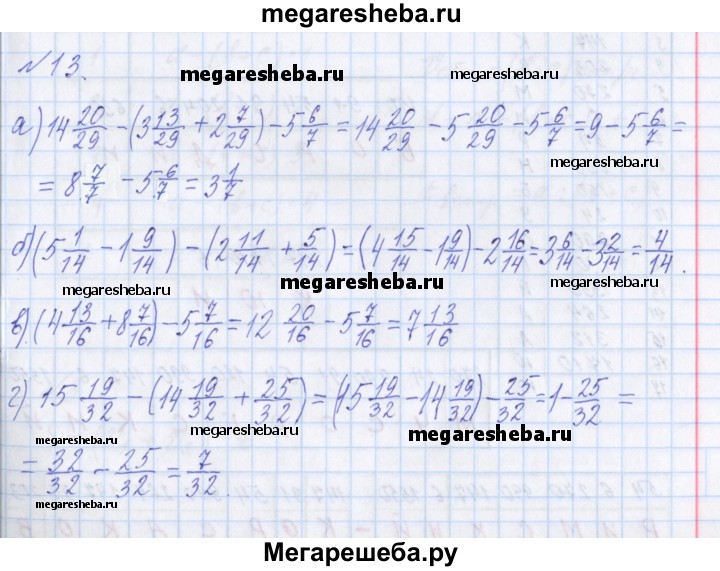 megaresheba.ru
№13.
megaresheba.ru megaresheba.ru
а) 14 20/29 - (3 13/29 + 2 7/29) - 5 6/7 = 14 20/29 - 5 20/29 - 5 6/7 = 9 - 5 6/7 =
megaresheba.ru
= 8 7/7 - 5 6/7 = 3 1/7
б) (5 1/14 - 1 9/14) - (2 11/14 + 5/14) = (4 15/14 - 1 9/14) - 2 16/14 = 3 6/14 - 3 2/14 = 4/14.
megaresheba.ru megaresheba.ru megaresheba.ru
в) (4 13/16 + 8 7/16) - 5 7/16 = 12 20/16 - 5 7/16 = 7 13/16
г) 15 19/32 - (14 19/32 + 25/32) = (15 19/32 - 14 19/32) - 25/32 = 1 - 25/32 =
megaresheba.ru megaresheba.ru megaresheba.ru
= 32/32 - 25/32 = 7/32.
megaresheba.ru
Мегарешеба.ру